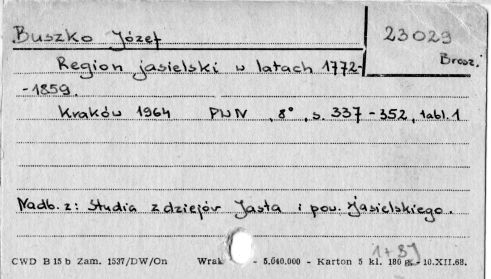 Buszko Józef
23029
Brosz.
Region jasielski w latach 1772-
-1859.
Kraków 1964 PWN , 8°, s. 337-352, tabl. 1
Nadb. z: Studia z dziejów Jasła i pow. Jasielskiego.
1+37
CWD B 15 b Zam. 1537/DW/On Wrak - 5.040.000 - Karton 5 kl. 180 g. - 10.XII.68.